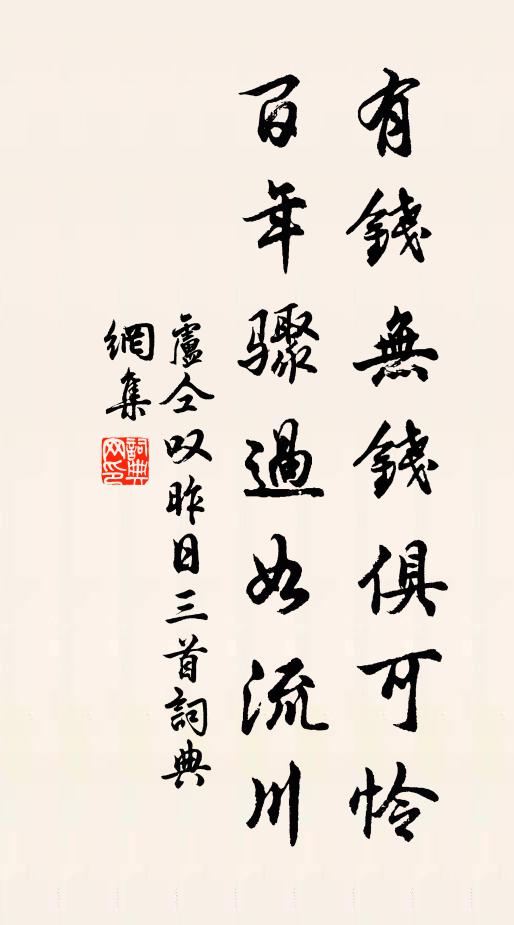 有錢無錢俱可怜
百年驟過如流川
盧仝叹昨日三首詞典
網集
詞典網印